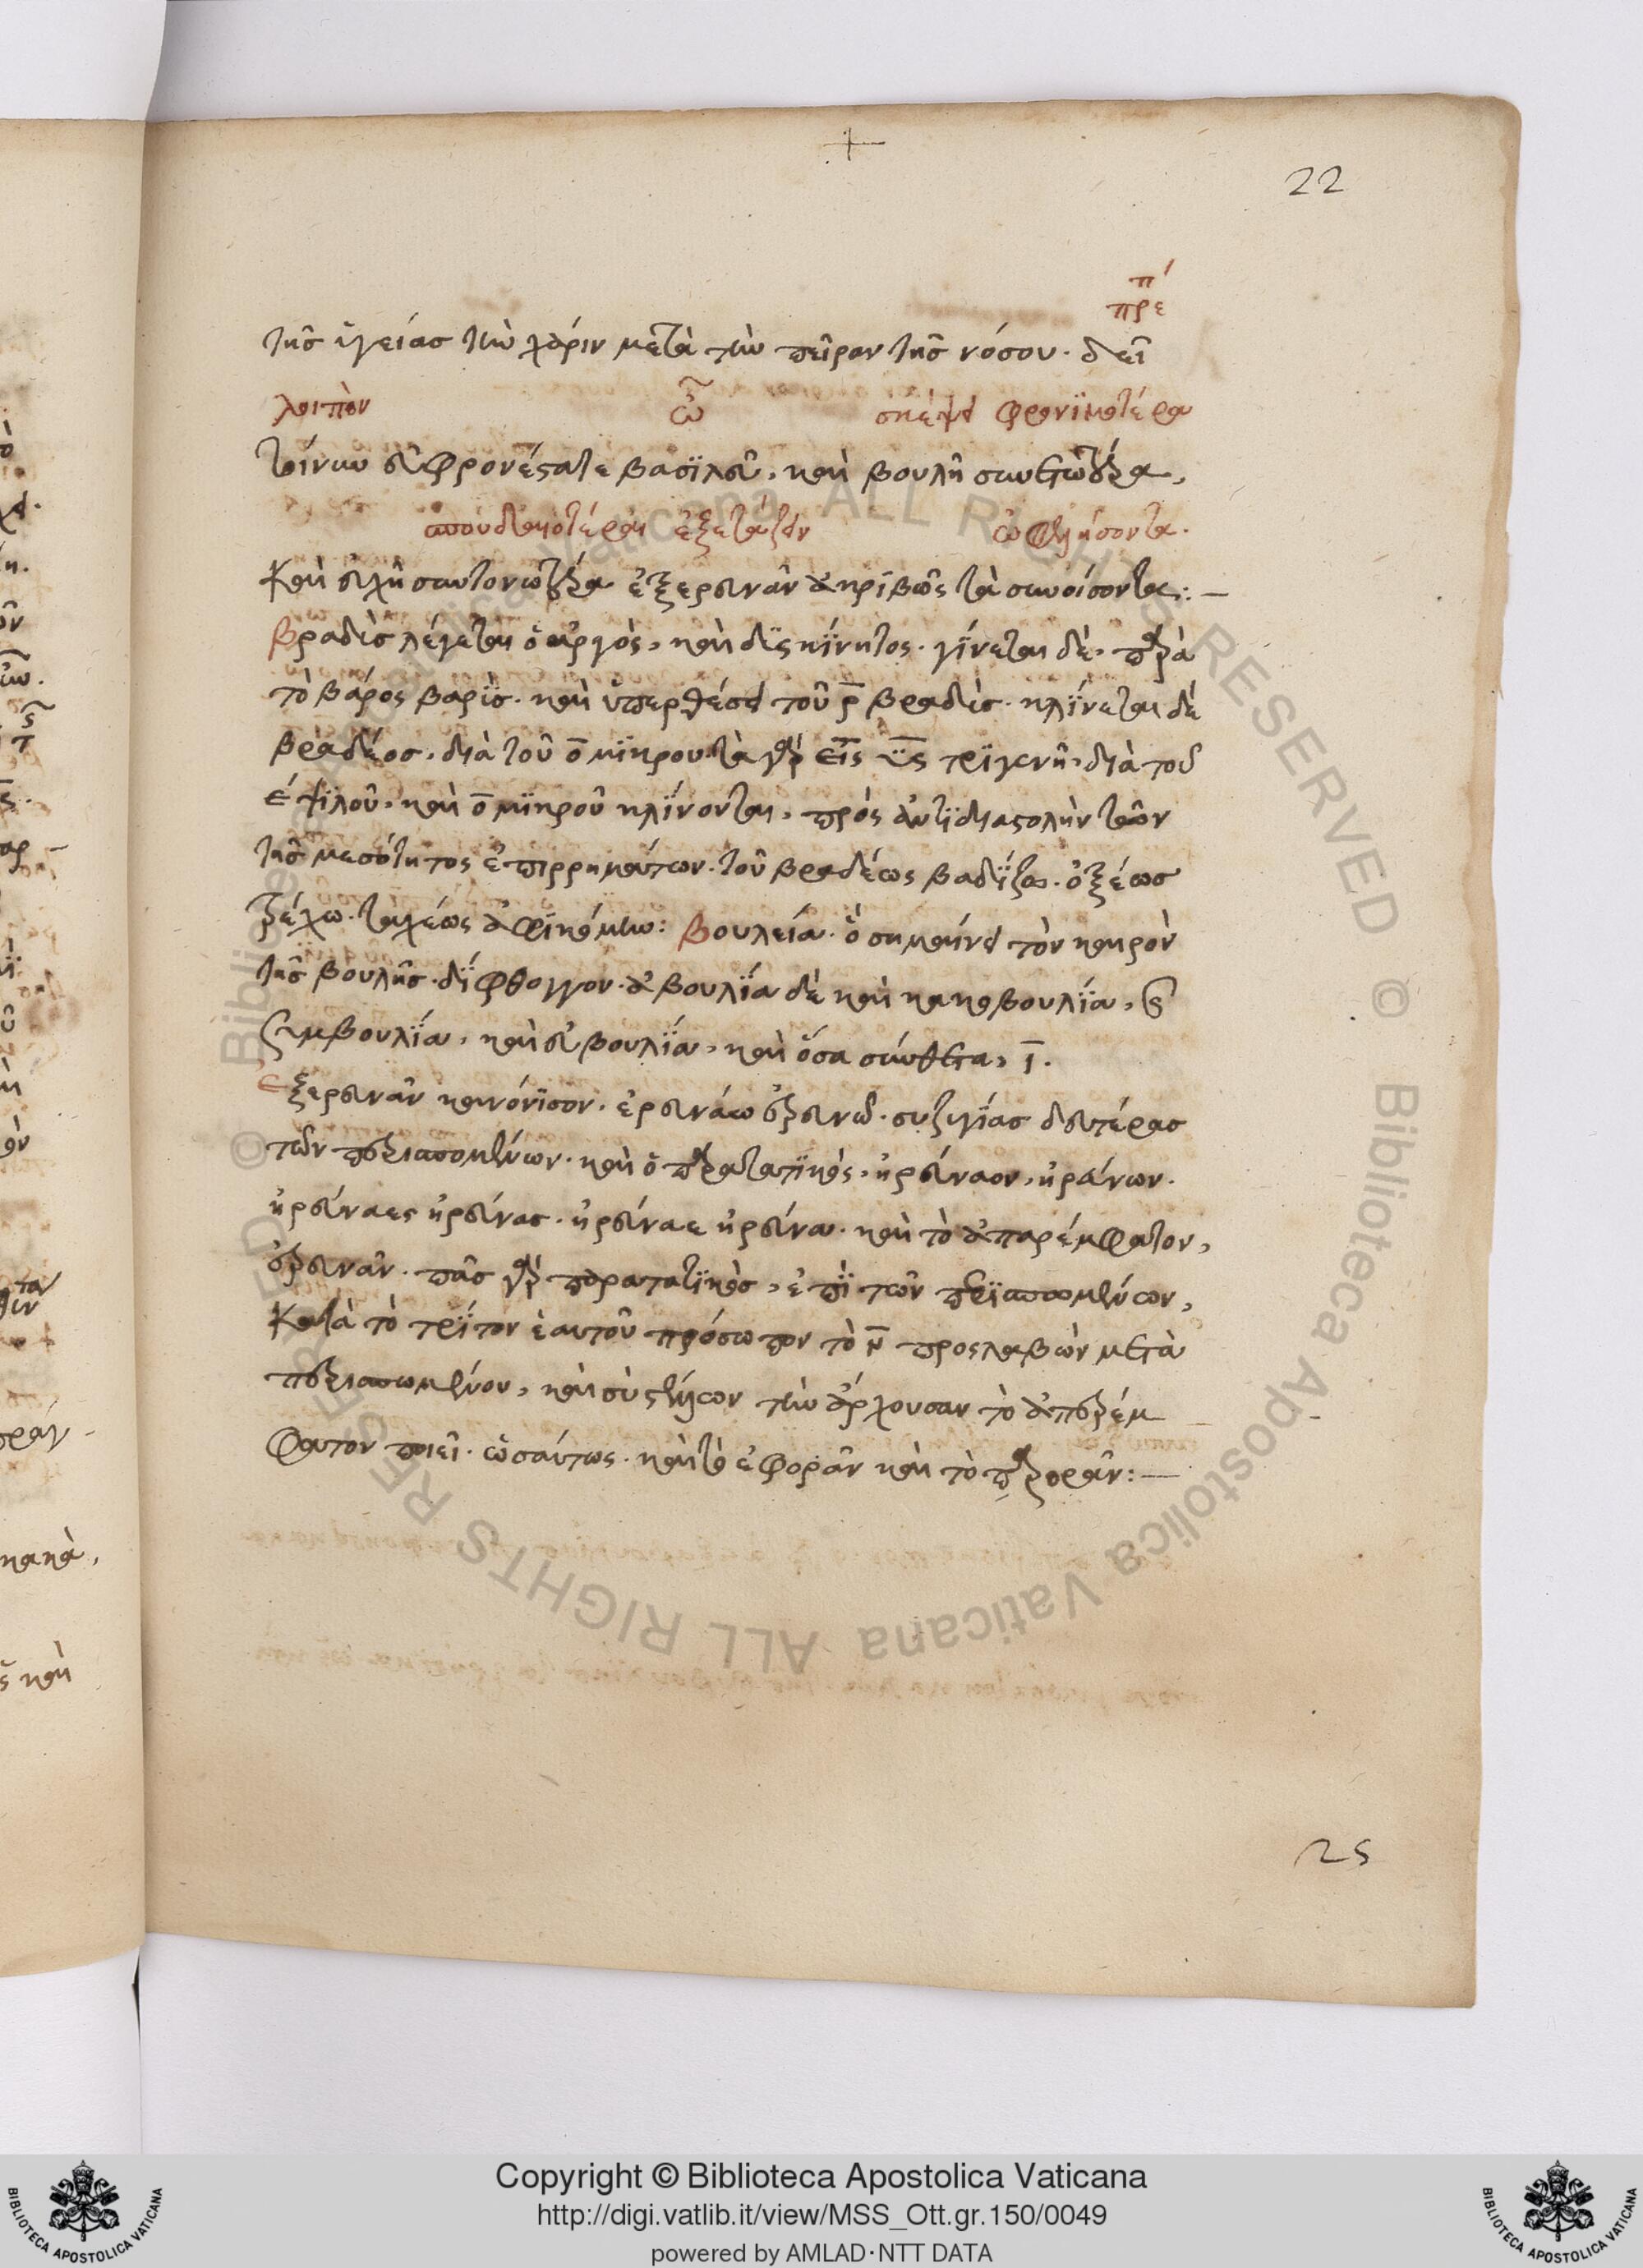 22
πρέπει
τῆς ὑγείας τὴν χάριν μετὰ τὴν πεῖραν τῆς νόσου· δεῖ
λοιπὸν ὦ σκέψει φρονϊμοτέρα
τοίνυν εὐφρονέστατε βασϊλεῦ, καὶ βουλῇ συνετωτέρα,
σπουδαιοτέραι ἐξετάζειν ὠφελήσοντα.
καὶ εὐχῇ συντονωτέρα ἐξερευνᾶν ἀκριβῶς τὰ συνοίσοντα:—
Βραδὺς λέγεται ὁ ἀργὸς, καὶ δϋσκίνητος· γίνεται δὲ, παρὰ
τὸ βάρος βαρὺς· καὶ ὑπερθέσει τοῦ ρ βραδὺς· κλίνεται δὲ
βραδέος, διὰ τοῦ ο μϊκροῦ τὰ γὰρ εἰς υς τρϊγενῆ, διὰ τοῦ
ε ψϊλοῦ, καὶ ο μϊκροῦ κλίνονται, πρὸς ἀντϊδιαστολὴν τῶν
τῆς μεσότητος ἐπιρρημάτων· τοῦ βραδέως βαδΐζω· ὀξέως
τρέχω· ταχέως ἀφικόμην: Βουλεία· ὃ σημαίνει τὸν καιρὸν
τῆς βουλῆς· δΐφθογγον· ἀβουλΐα δὲ καὶ κακοβουλΐα, καὶ
συμβουλΐα, καὶ εὐβουλΐα, καὶ ὅσα σύνθετα, ι.
Ἐξερευνᾶν κανόνϊσον· ἐρευνάω ἐρευνῶ· συζυγΐας δευτέρας
τῶν περισπωμένων· καὶ ὁ παρατατϊκὸς, ἠρεύναον, ἠρεύνων·
ἠρεύναες ἠρεύνας· ἠρεύναε ἠρεύνα· καὶ τὸ ἀπαρέμφατον,
ἐρευνᾶν· πᾶς γὰρ παρατατϊκὸς, ἐπῒ τῶν περϊσπωμένων,
κατὰ τὸ τρίτον ἑαυτοῦ πρόσωπον τὸ ν προσλαβὼν μετὰ
περισπωμένου, καὶ συστέλων τὴν ἄρχουσαν τὸ ἀπαρέμ
φατον ποιεῖ· ὡσαύτως· καὶ τὸ ἐφορᾶν καὶ τὸ παρορᾶν:—
25
© Biblioteca Apostolica Vaticana ALL RIGHTS RESERVED © Biblioteca Apostolica Vaticana ALL RIGHTS RESERVED
Copyright © Biblioteca Apostolica Vaticana
http://digi.vatlib.it/view/MSS_Ott.gr.150/0049
powered by AMLAD·NTT DATA
BIBLIOTECA APOSTOLICA VATICANA
BIBLIOTECA APOSTOLICA VATICANA